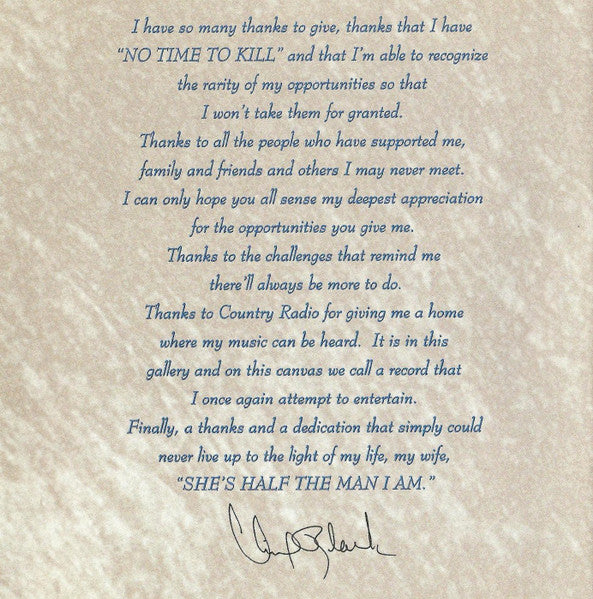 I have so many thanks to give, thanks that I have
“NO TIME TO KILL” and that I’m able to recognize
the rarity of my opportunities so that
I won’t take them for granted.
Thanks to all the people who have supported me,
family and friends and others I may never meet.
I can only hope you all sense my deepest appreciation
for the opportunities you give me.
Thanks to the challenges that remind me
there’ll always be more to do.
Thanks to Country Radio for giving me a home
where my music can be heard.  It is in this
gallery and on this canvas we call a record that
I once again attempt to entertain.
Finally, a thanks and a dedication that simply could
never live up to the light of my life, my wife,
“SHE’S HALF THE MAN I AM.”
Clint Black